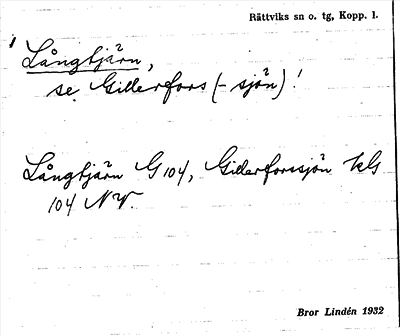 Rättviks sn o. tg, Kopp. l.
Långtjärn,
se Gillerfors (-sjön)!
Långtjärn G 104, Gillerforssjön kls
104 NV.
Bror Lindén 1932